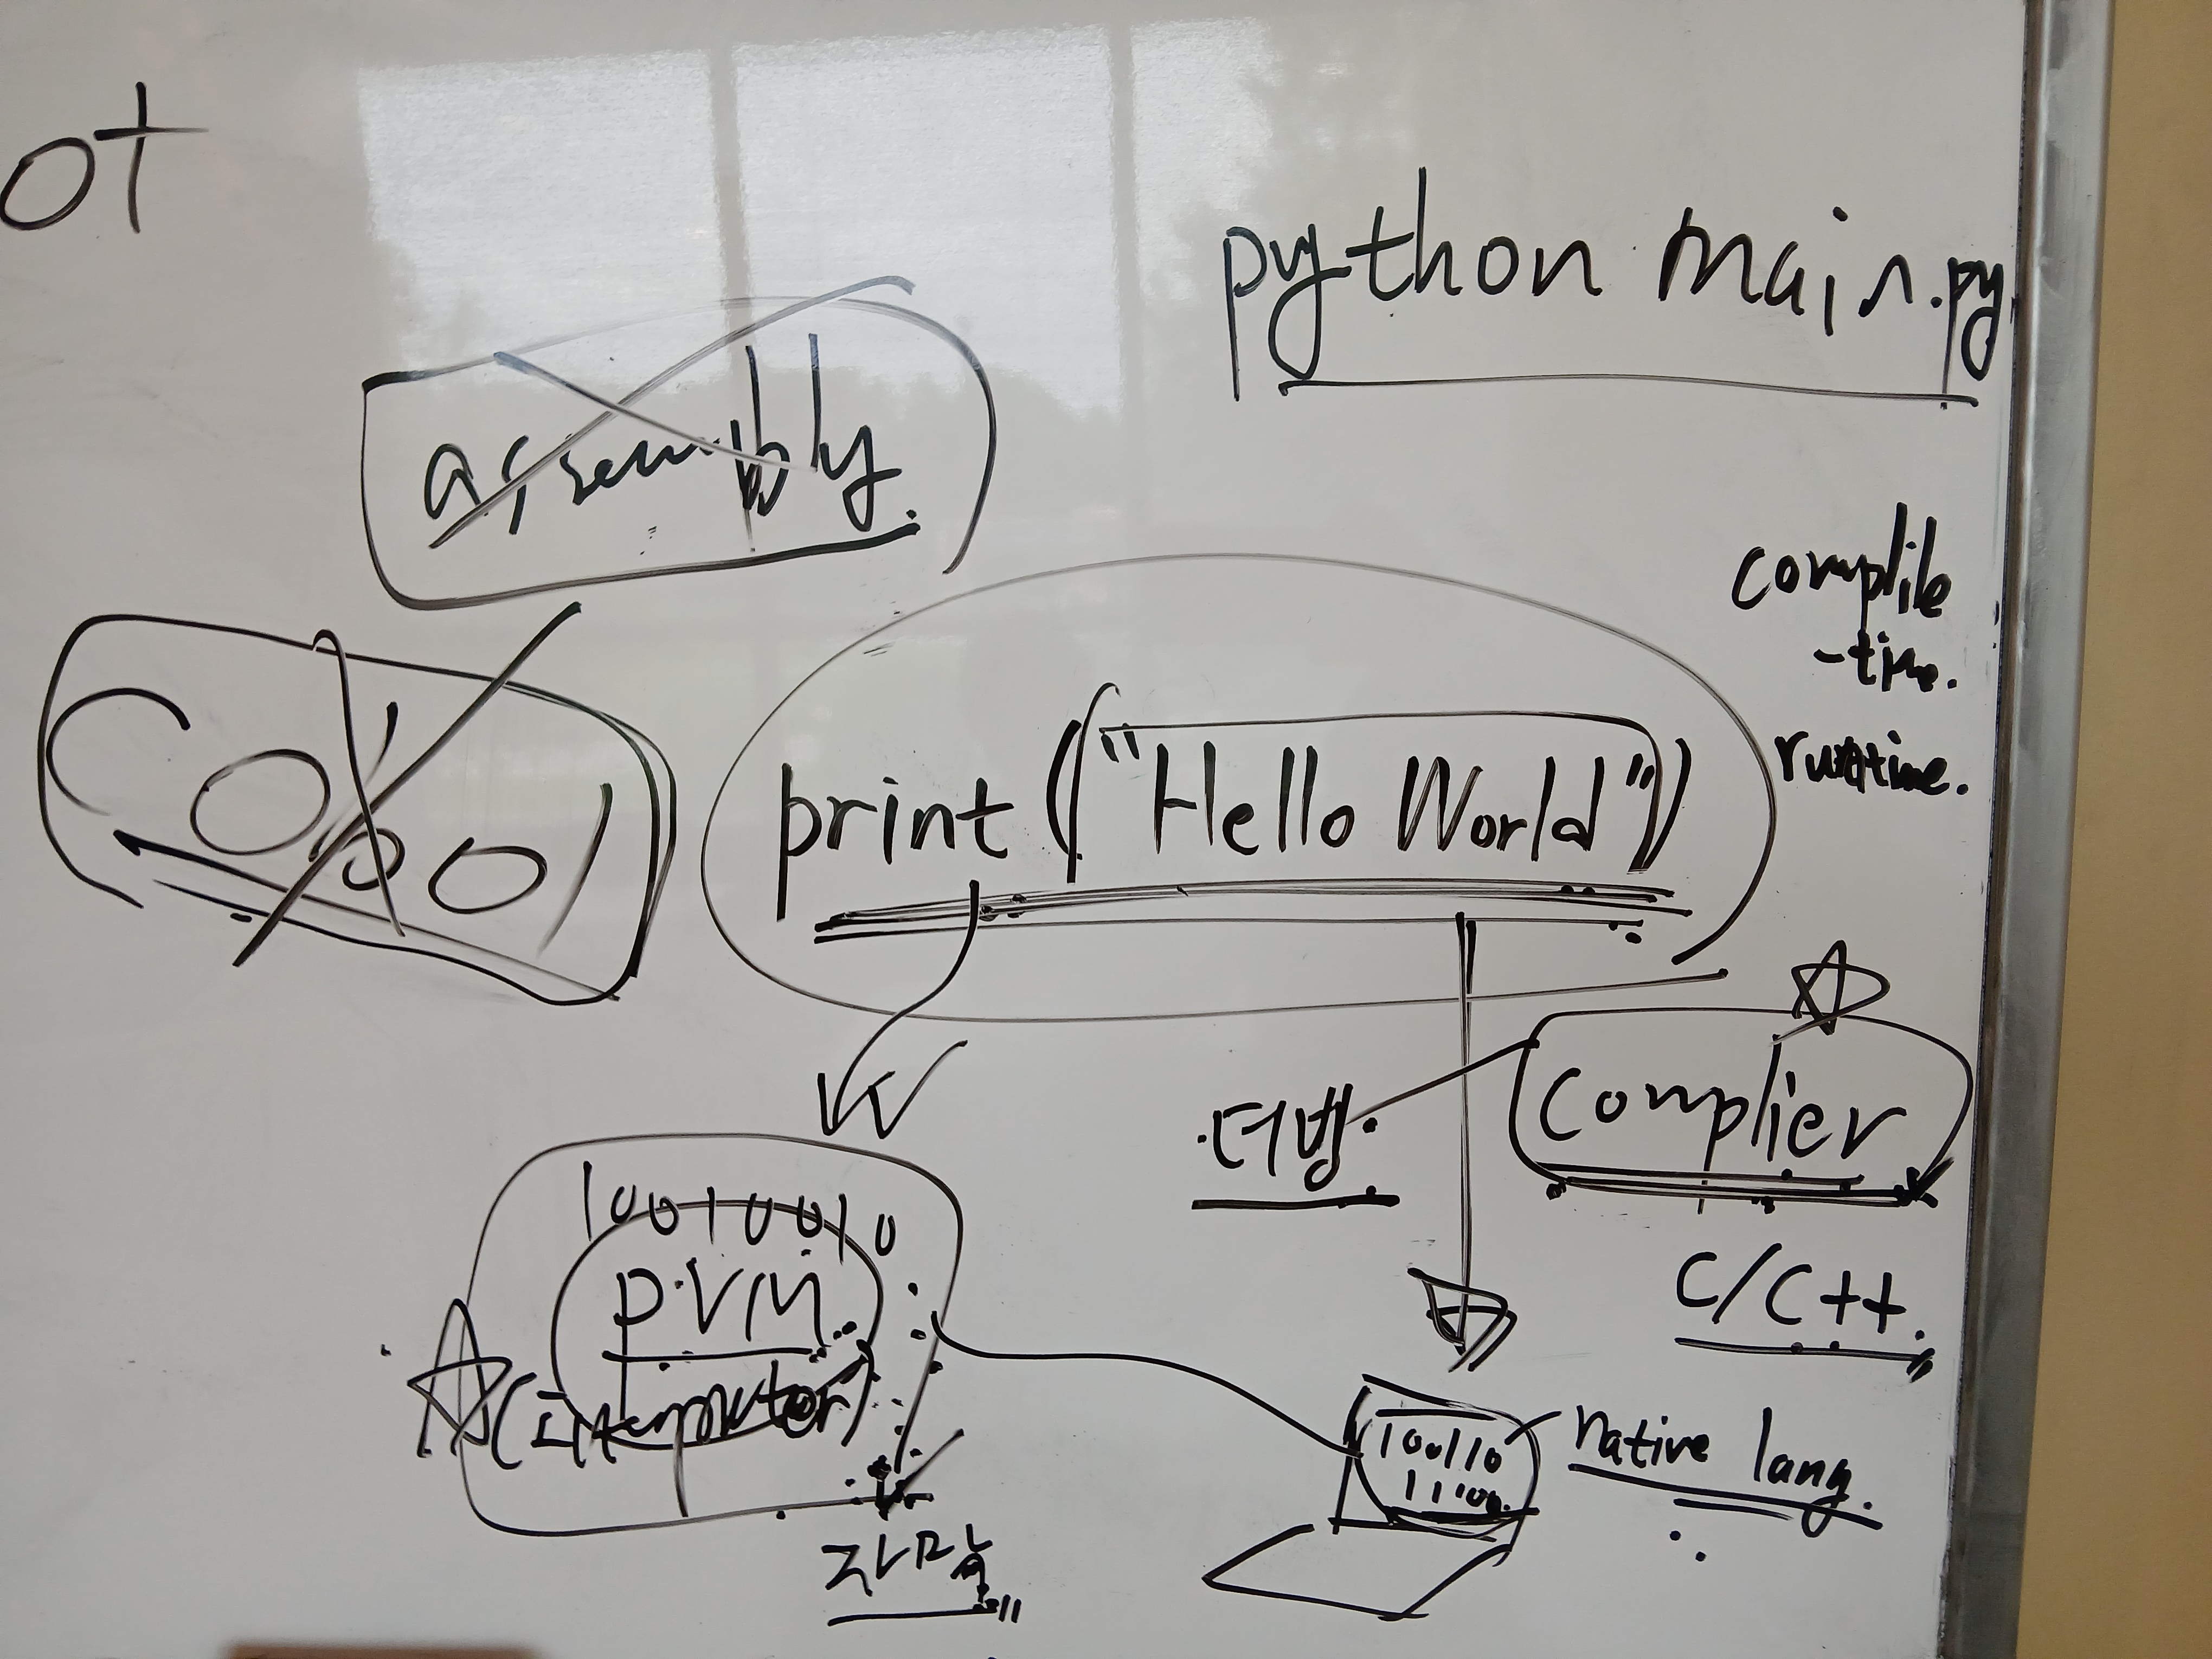 ot
python main.py
assembly.
complile
-time.
runtime.
Cobol
print ("Hello World")
complier
더빙.
C/C++.
10010010
P.VM.
(Interpreter)
자막
100110
11100
native lang.